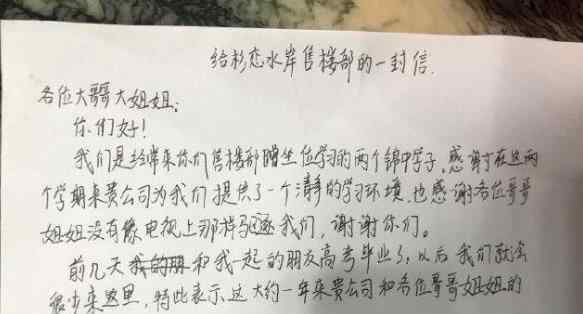 给杉恋水岸售楼部的一封信.
各位大哥大姐姐:
你们好!
我们是经常来你们售楼部蹭坐位学习的两个锦中学子,感谢在这两
个学期来贵公司为我们提供了一个清静的学习环境.也感谢各位哥哥
姐姐没有像电视上那样驱逐我们,谢谢你们。
前几天我的朋和我一起的朋友高考毕业了,以后我们就会
很少来这里,特此表示这大约一年来贵公司和各位哥哥姐姐的